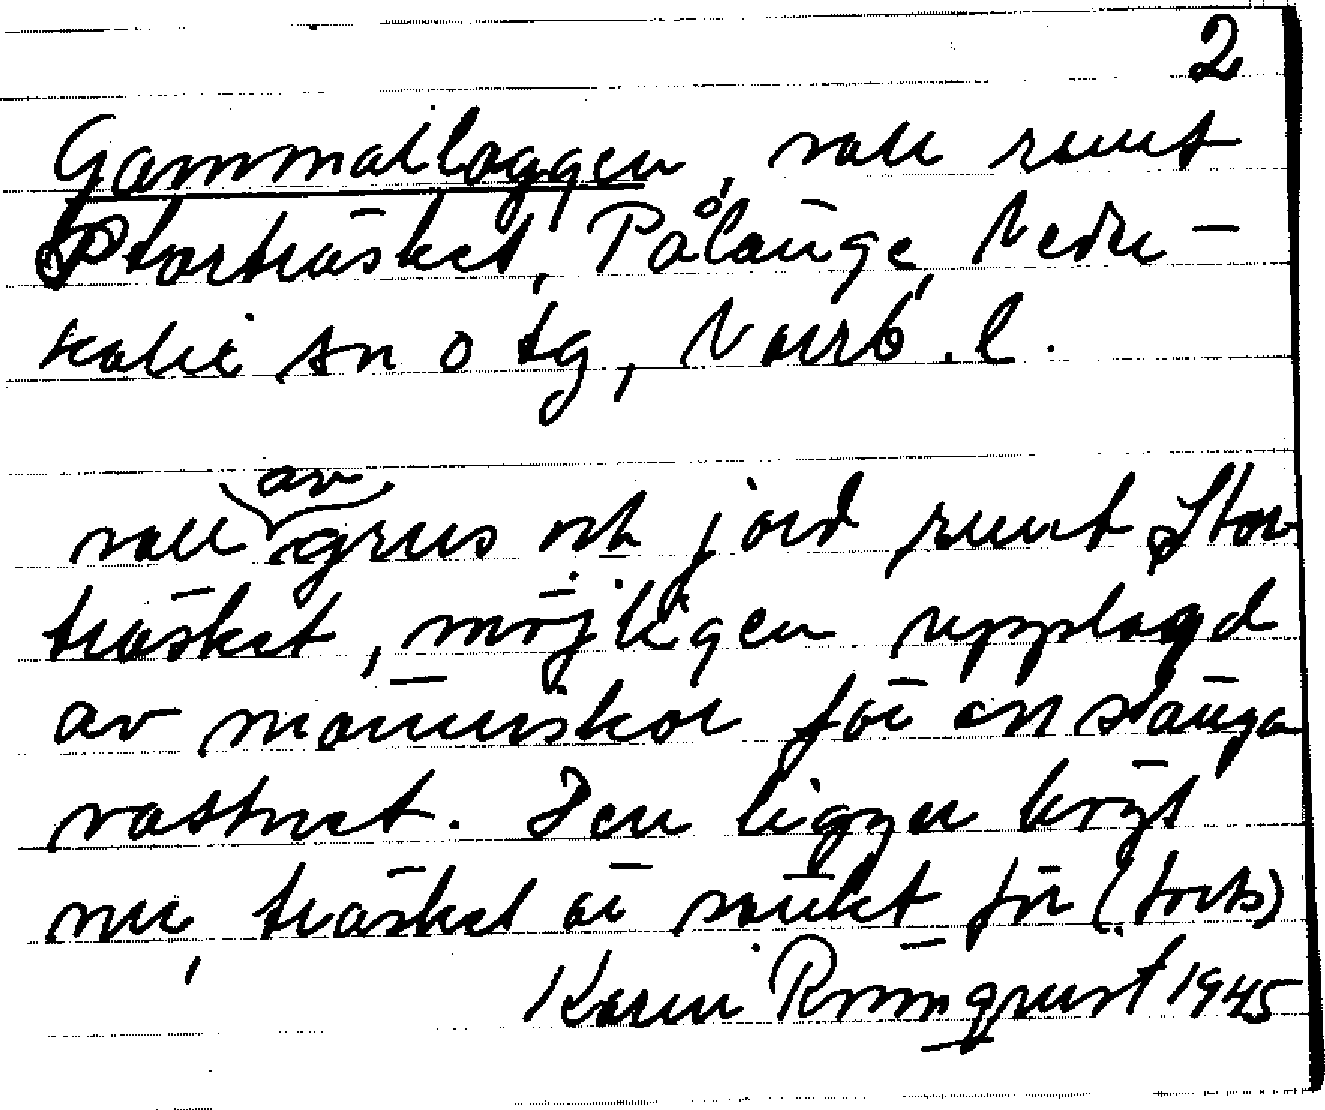 2
Gammalloggen, vall runt
Storträsket, Pålänge, Neder-
kalix sn o tg, Norrb. l.
vall av grus och jord runt Stor-
träsket, möjligen upplagd
av människor för en slänga
vattnet. Den ligger högt
nu, träsket är sänkt för (forts)
Karin Rönnqvist 1945